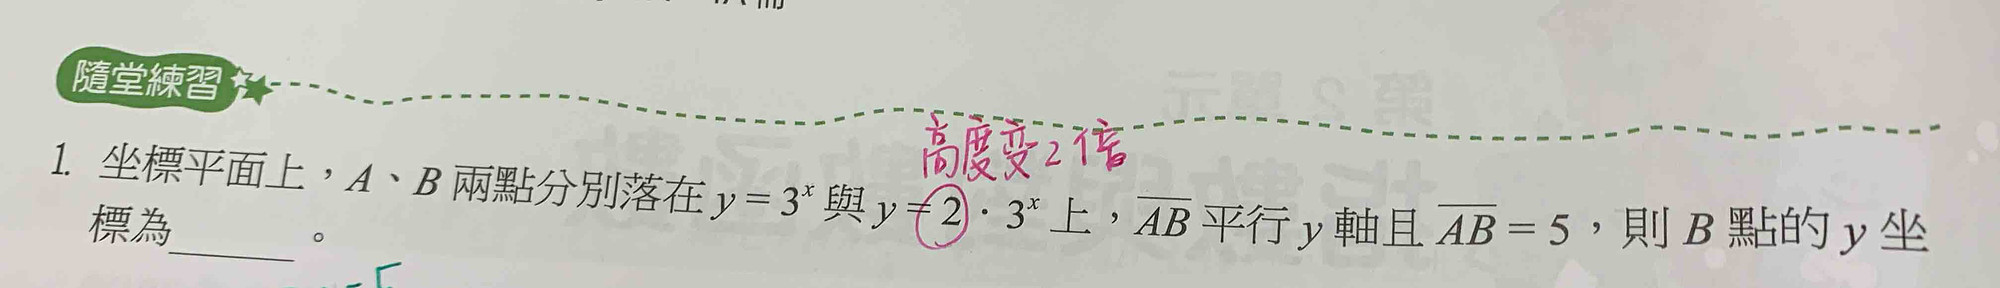 隨堂練習
高度变2倍
1. 坐標平面上，A、B 兩點分別落在 y = 3ˣ 與 y = 2 · 3ˣ 上，A̅B̅ 平行 y 軸且 A̅B̅ = 5，則 B 點的 y 坐
標為______。